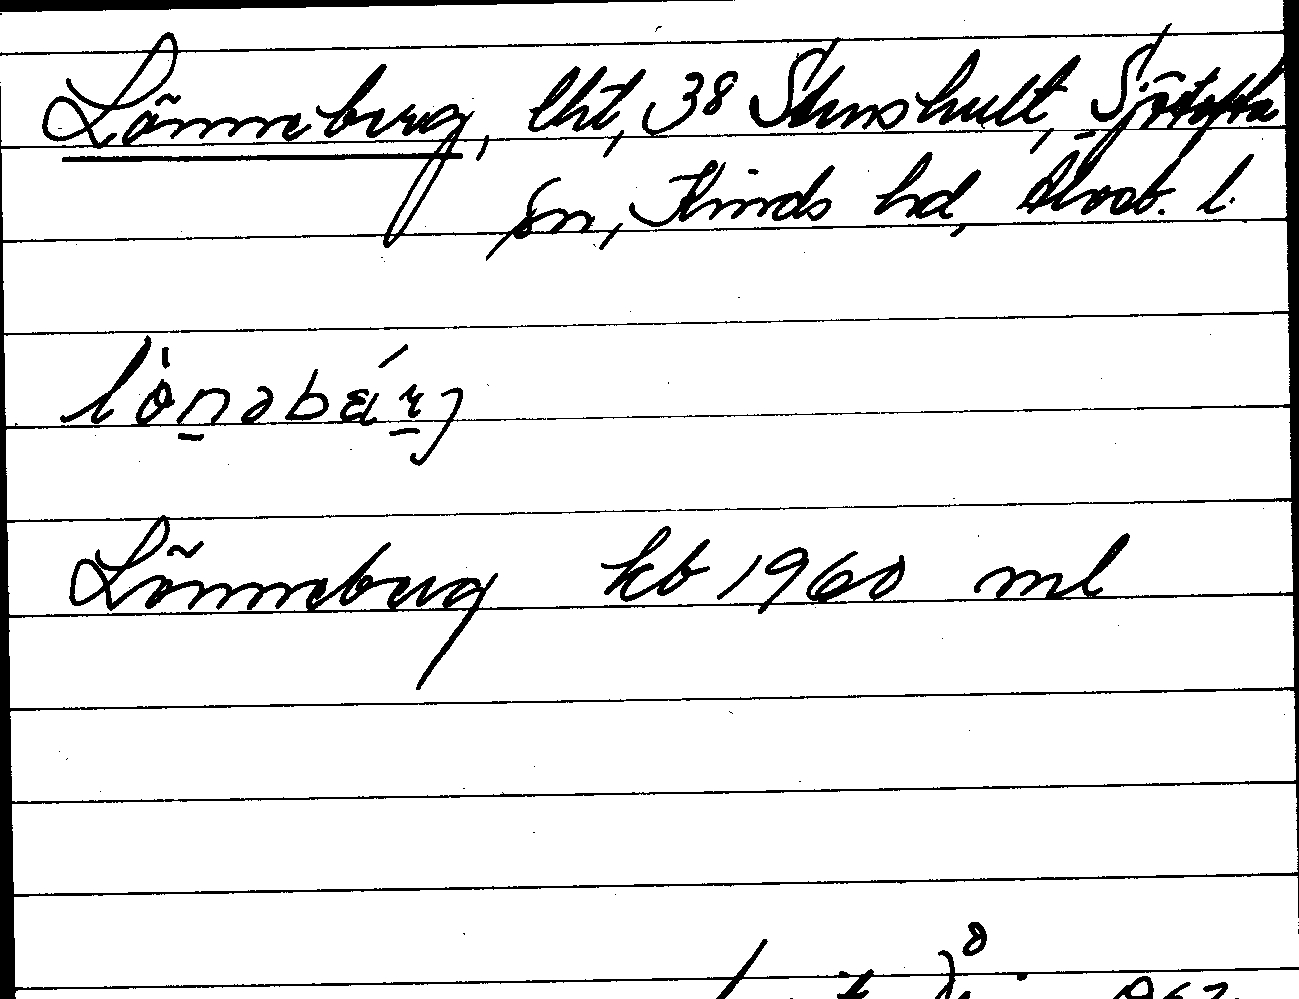 Lönneberg, lht, 38 Stenshult, Sjötofta
sn, Kinds hd, Älvsb. l.
Lönneberg kb 1960 ml